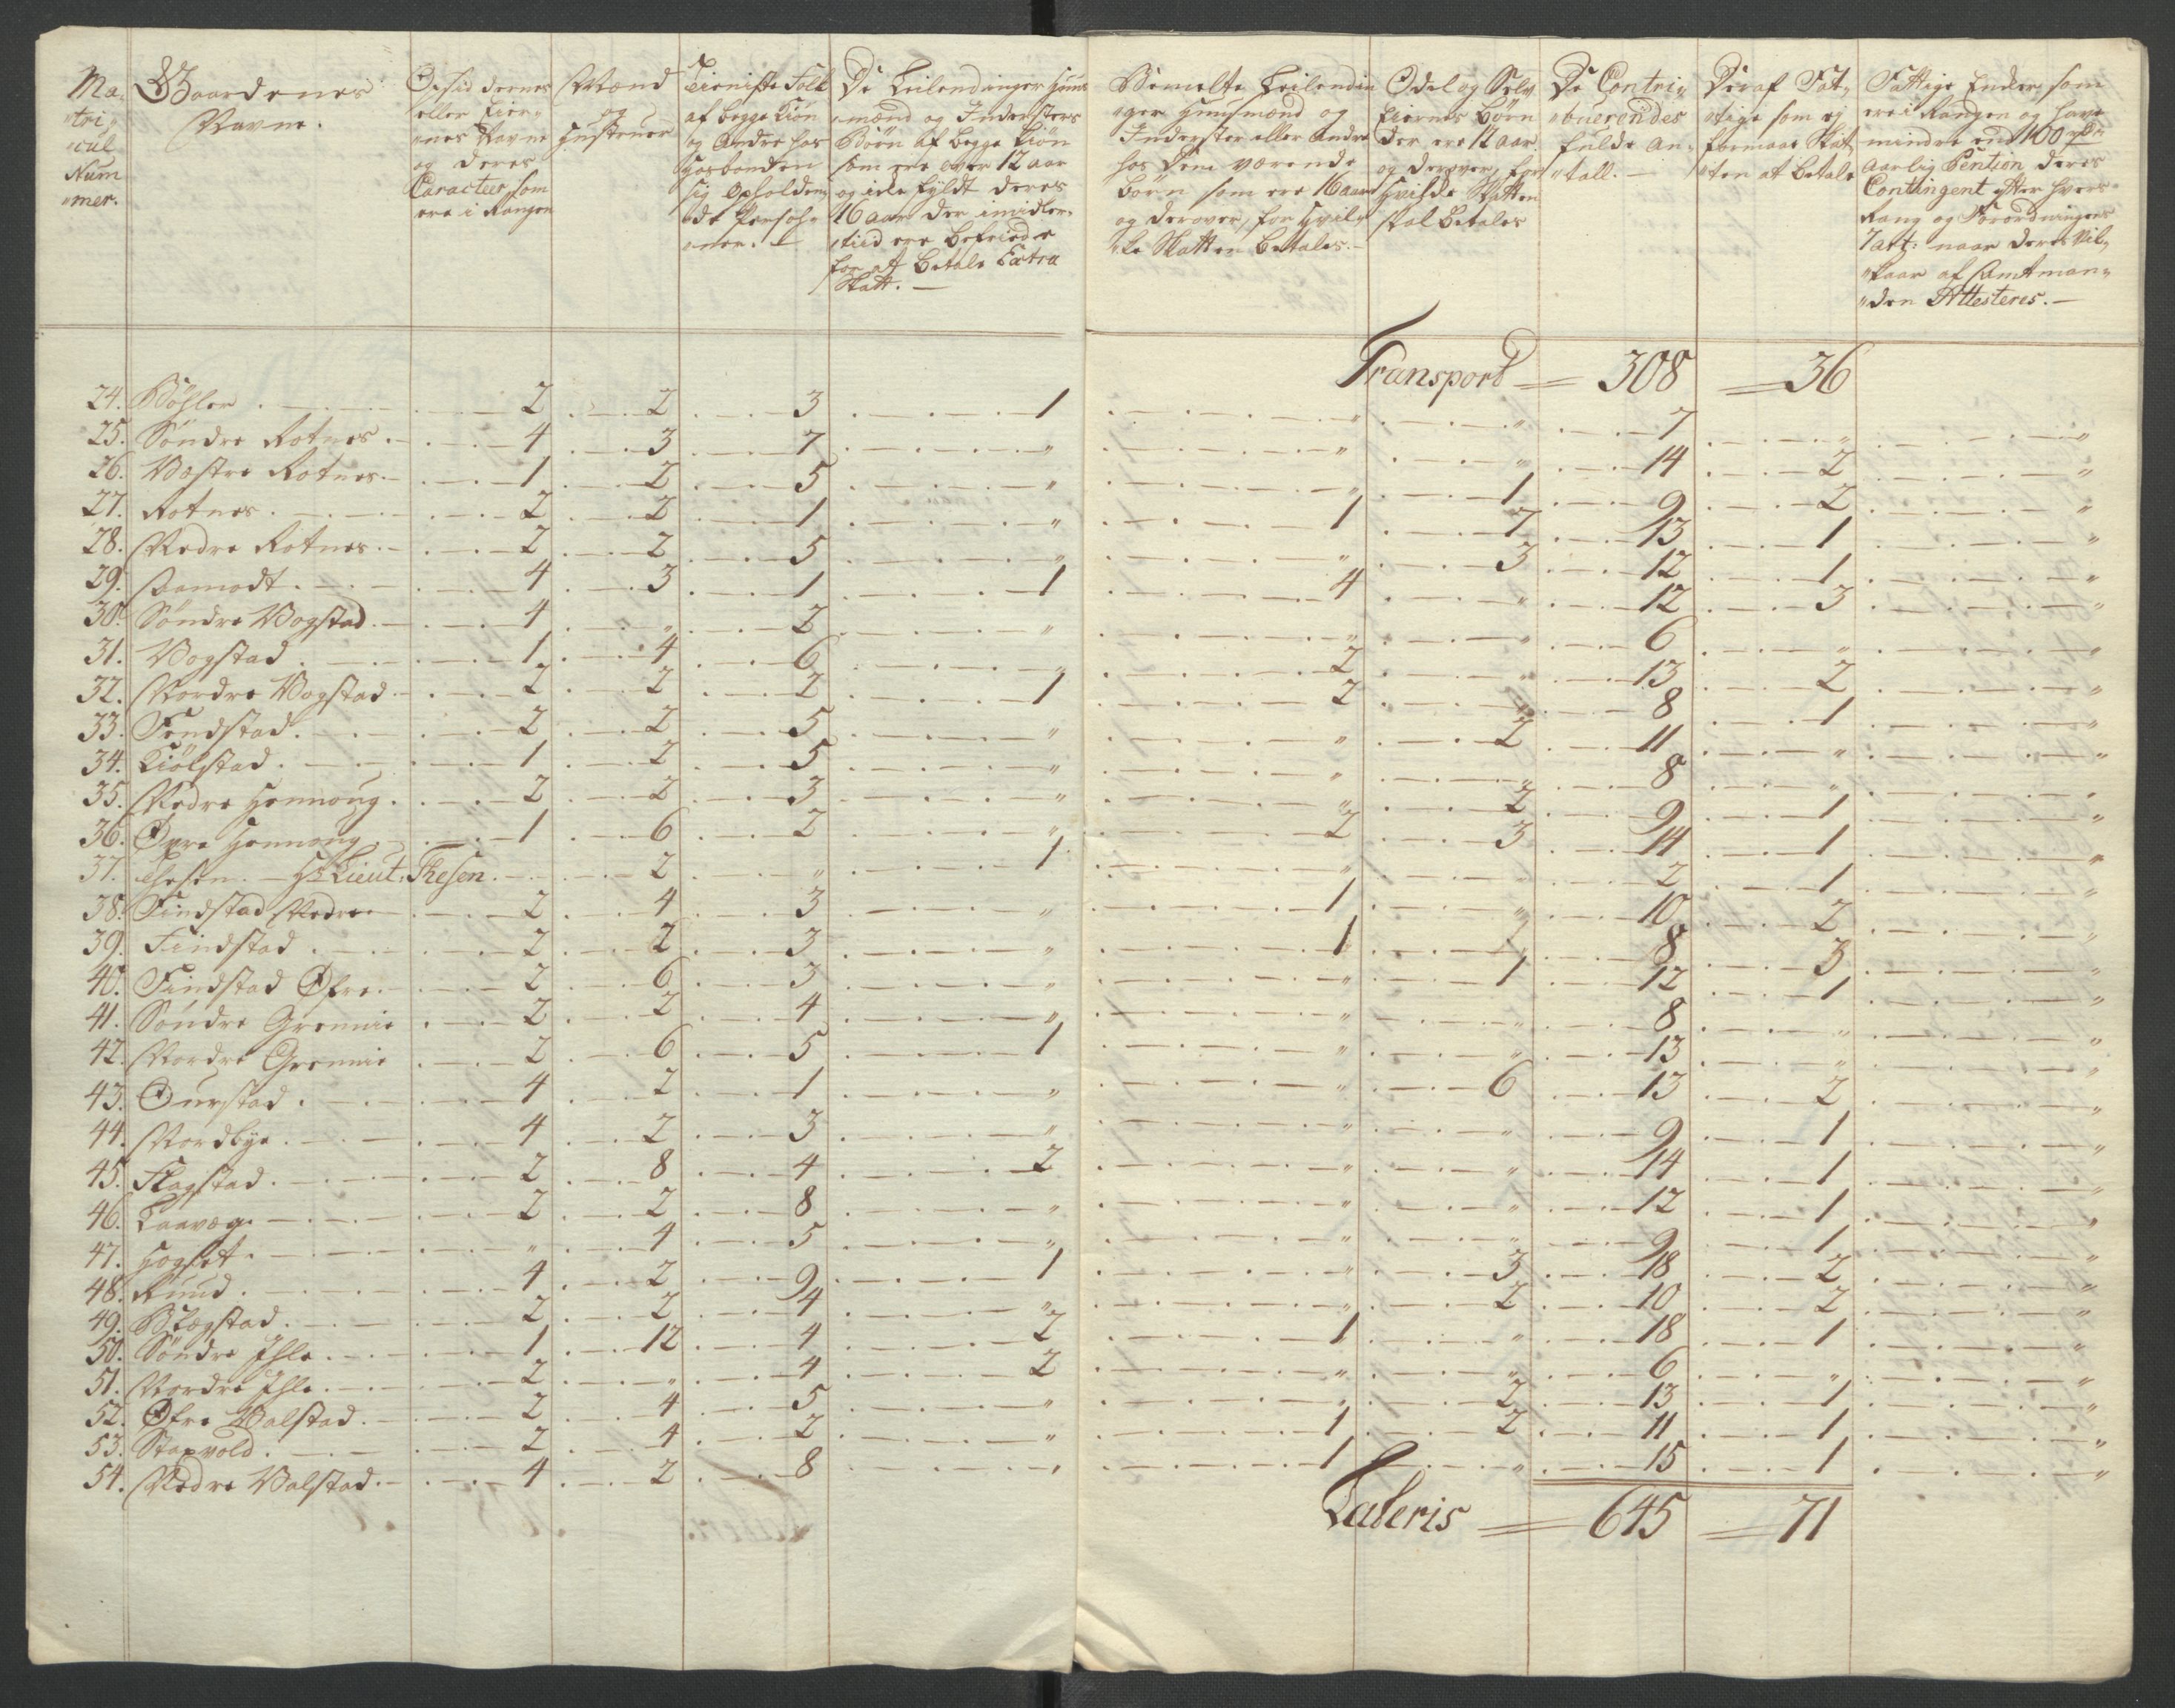 Ma-
"tri-
"cul
Num
"mer.
Gaardenes
Navne.
Besid dernes
eller Eier-
"nes Navne
og deres
Caracteer, som
ere i Rangen
Mænd
og
Hustruer
Tieniste Folk
af begge Kiøn
og Andre hos
Hosbonden
sig opholden-
de Persoh-
ner. —
De Leilendinger Huus
"mænd og Inderster
Børn af begge Kiøn
som ere over 12 aar
og icke fyldt deres
16 aar der imidler-
"tiid ere befriede
for at betale Extra
Skatt. —
Bemelte Leilendin
"ger Huusmænd og
Inderster eller Andre
hos dem værende
børn som ere 16 aar
og derover, for hvil-
"ke Skatten betales. —
Odel og Selv
Eiernes børn
der ere 12 aar
og derover, for
hvilke Skatten
skal betales
De Contri-
"buerendes
fulde an-
"tall. —
Deraf Fat-
"tige som ej
formaar Skat
"ten at betale
Fattige Enker, som
ere i Rangen og have
mindre end 100 rdr
aarlig Pention, deres
Contingent efter hvers
Rang og Forordningens
7 art: naar deres Vil-
"kaar af Amtman-
"den Attesteres. —
Transport — 308 — 36
24. Böhler 2 2 3 1 " " 7 " "
25. Söndre Rotnes 4 3 7 " " " 14 2 "
26. Westre Rotnes 1 2 5 " " 1 9 2 "
27. Rotnes 2 2 1 " 1 7 13 1 "
28. Nedre Rotnes 2 2 5 " " 3 12 1 "
29. Aamodt 4 3 1 1 4 " 12 3 "
30. Söndre Wogstad 4 " 2 " " " 6 " "
31. Wogstad 1 4 6 " 2 " 13 2 "
32. Nordre Wogstad 2 2 2 1 2 " 8 1 "
33. Fendstad 2 2 5 " " 2 11 " "
34. Kiölstad 1 2 5 " " " 8 " "
35. Nedre Hennong 2 2 3 " " 2 9 1 "
36. Øvre Hennong 1 6 2 " 2 3 14 1 "
37. Thesen — Hr Lieut: Thesen 2 " 1 " " 2 1 "
38. Findstad Nedre 2 4 3 " 1 " 10 2 "
39. Findstad 2 2 3 " 1 " 8 3 "
40. Findstad Øfre 2 6 3 " " 1 12 1 "
41. Söndre Grennie 2 2 4 " " " 8 " "
42. Nordre Grennie 2 6 5 1 " " 13 " "
43. Ourstad 4 2 1 " " 6 13 2 "
44. Nordbye 4 2 3 " " " 9 1 "
45. Flagstad 2 8 4 2 " " 14 1 "
46. Laaveg 2 2 8 " " " 12 1 "
47. Hogset " 4 5 " " " 9 1 "
48. Ruud 4 2 9 1 " 3 18 2 "
49. Blegstad 2 2 4 " " 2 10 2 "
50. Söndre Ihle 1 12 4 2 1 " 18 1 "
51. Nordre Ihle 2 " 4 2 " " 6 " "
52. Øfre Walstad 2 4 5 " " 2 13 1 "
53. Stapvold 2 4 2 " 1 2 11 1 "
54. Nedre Walstad 4 2 8 " 1 " 15 1 "
Lateris — 645 — 71